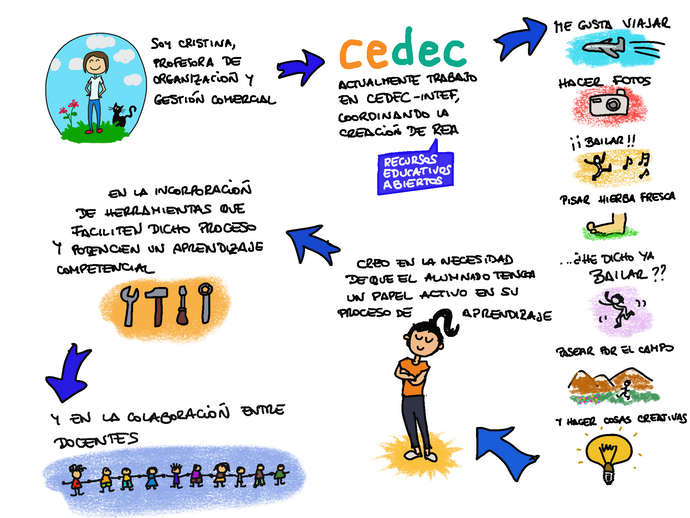 SOY CRISTINA,
PROFESORA DE
ORGANIZACIÓN Y
GESTIÓN COMERCIAL
cedec
ACTUALMENTE TRABAJO
EN CEDEC-INTEF,
COORDINANDO LA
CREACIÓN DE REA
RECURSOS
EDUCATIVOS
ABIERTOS
ME GUSTA VIAJAR
HACER FOTOS
¡¡BAILAR!!
PISAR HIERBA FRESCA
...¿HE DICHO YA
BAILAR??
PASEAR POR EL CAMPO
Y HACER COSAS CREATIVAS
CREO EN LA NECESIDAD
DE QUE EL ALUMNADO TENGA
UN PAPEL ACTIVO EN SU
PROCESO DE APRENDIZAJE
EN LA INCORPORACIÓN
DE HERRAMIENTAS QUE
FACILITEN DICHO PROCESO
Y POTENCIEN UN APRENDIZAJE
COMPETENCIAL
Y EN LA COLABORACIÓN ENTRE
DOCENTES